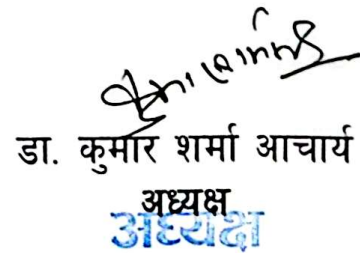 डा. कुमार शर्मा आचार्य
अध्यक्ष
अध्यक्ष